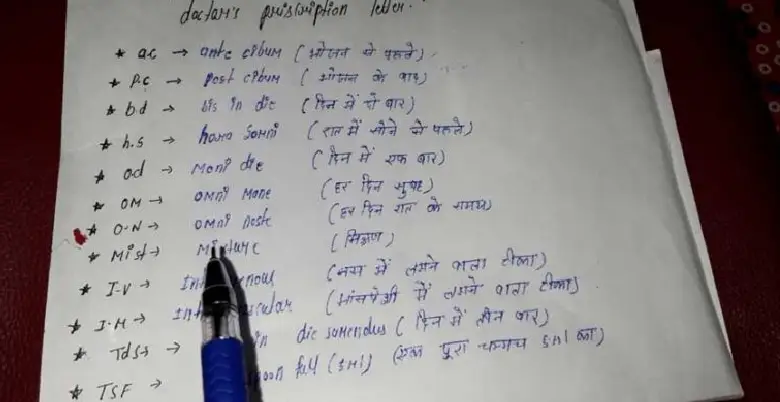 doctor's priscription letter.
* a.c → ante cibum (भोजन से पहले)
* P.C → Post cibum (भोजन के बाद)
* b.d → bis in die (दिन में दो बार)
* h.s → hora Somni (रात में सोने से पहले)
* od → Moni die (दिन में एक बार)
* OM → OMNi Mane (हर दिन सुबह)
* O-N → OMNi noste (हर दिन रात के समय)
* Mist → Mixture (मिश्रण)
* I-V → (नस में लगने वाला टीका)
* I.M → (मांसपेशी में लगने वाला टीका)
* Tds → in die sumendus (दिन में तीन बार)
* TSF → full (5Ml) (एक पूरा चम्मच 5Ml का)